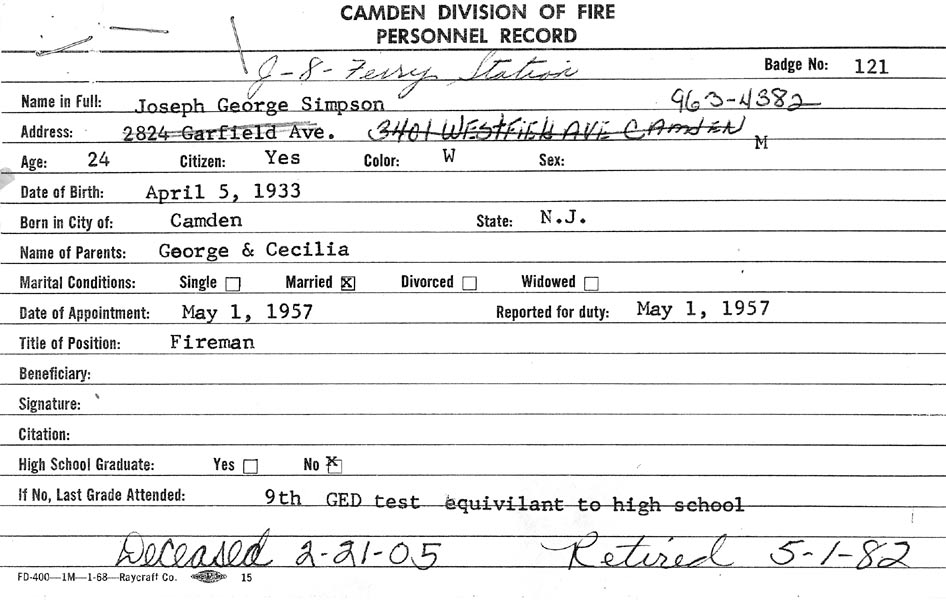 CAMDEN DIVISION OF FIRE
PERSONNEL RECORD
J-8-Ferry Station
Badge No: 121
Name in Full: Joseph George Simpson 963-4382
Address: 2824 Garfield Ave. 3401 WESTFIELD AVE CAMDEN
Age: 24 Citizen: Yes Color: W Sex: M
Date of Birth: April 5, 1933
Born in City of: Camden State: N.J.
Name of Parents: George & Cecilia
Marital Conditions: Single Married X Divorced Widowed
Date of Appointment: May 1, 1957 Reported for duty: May 1, 1957
Title of Position: Fireman
Beneficiary:
Signature:
Citation:
High School Graduate: Yes No X
If No, Last Grade Attended: 9th GED test equivilant to high school
Deceased 2-21-05 Retired 5-1-82
FD-400—1M—1-68—Raycraft Co. 15